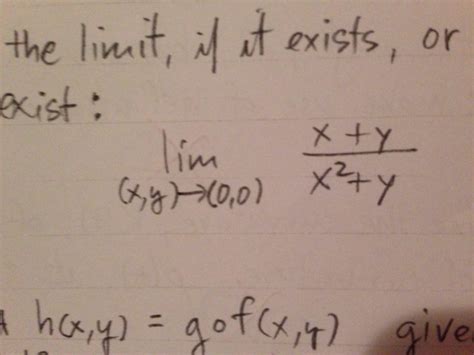 the limit, if it exists, or
exist:
lim
(x,y)→(0,0)
x + y
x²+y
h(x,y) = gof(x,y) give